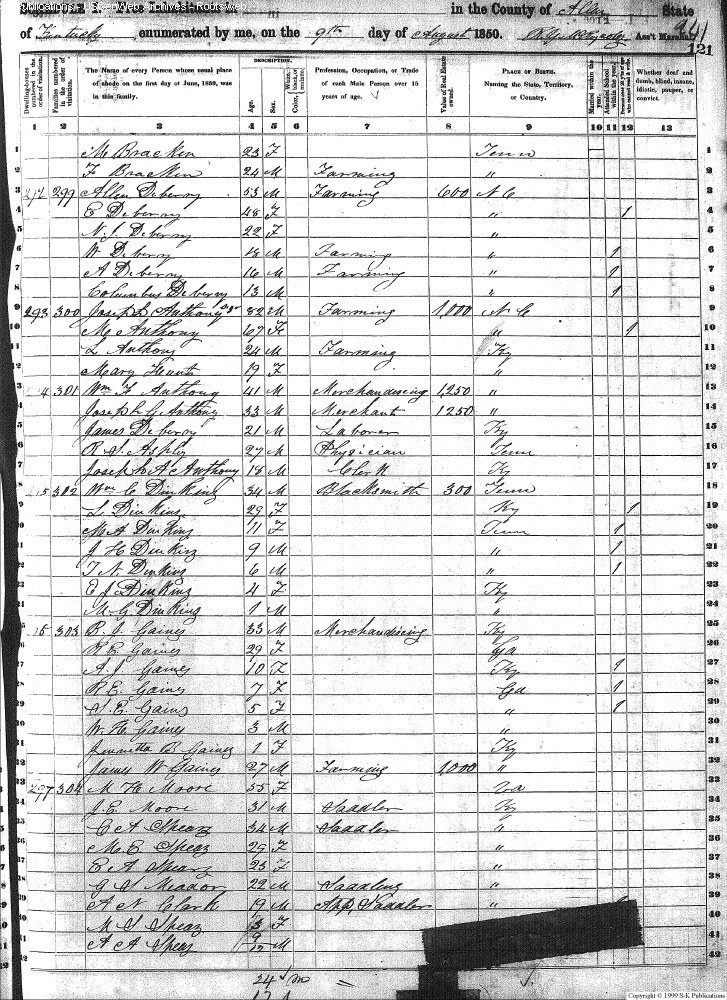 Publications - USGenWeb Archives - Rootsweb
in the County of Allen State
of Kentucky enumerated by me, on the 9th day of August 1850. Ass't Marshal
121
Dwelling-houses numbered in the order of visitation. Families numbered in the order of visitation. The Name of every Person whose usual place of abode on the first day of June, 1850, was in this family. DESCRIPTION. Age. Sex. Color, White, black, or mulatto. Profession, Occupation, or Trade of each Male Person over 15 years of age. Value of Real Estate owned. PLACE OF BIRTH. Naming the State, Territory, or Country. Married within the year. Attended School within the year. Whether deaf and dumb, blind, insane, idiotic, pauper, or convict.
1 2 3 4 5 6 7 8 9 10 11 12 13
1 M Bracken 23 F Tenn 1
2 F Bracken 24 M Farming " 2
3 299 Allen Deberry 53 M Farming 600 N C 3
4 E Deberry 48 F " 1 4
5 N. J. Deberry 22 F " 5
6 W Deberry 18 M Farming " 1 6
7 A Deberry 16 M Farming " 1 7
8 Columbus Deberry 13 M " 1 8
9 293 300 Joseph L Anthony 82 M Farming 1,000 N C 9
10 M Anthony 67 F " 1 10
11 L Anthony 24 M Farming Ky 11
12 Mary Hunt 19 F " 12
4 301 Wm F Anthony 41 M Merchandising 1,250 " 13
Joseph G Anthony 33 M Merchant 1250 " 14
James Deberry 21 M Laborer Ky 15
R S Ashly 27 M Physician Tenn 16
Joseph A Anthony 18 M Clerk Ky 17
302 Wm C Dinking 34 M Blacksmith 300 Tenn 18
L Dinking 29 F Ky 1 19
M A Dinking 11 F Tenn 1 20
J H Dinking 9 M " 1 21
T N Dinking 6 M " 1 22
E J Dinking 4 F Ky 23
M G Dinking 1 M " 24
303 B. J. Gaines 33 M Merchandising Ky 25
R E Gaines 29 F Ga 26
A J Gaines 10 F Ky 1 27
R E Gaines 7 F Ga 1 28
S. E. Gaines 5 F " 1 29
W. H Gaines 3 M " 30
B. Gaines 1 F Ky 31
James W Gaines 27 M Farming 1,000 " 32
297 304 M H Moore 55 F Va 33
J. E. Moore 31 M Saddler Ky 34
C A Spear 34 M Saddler " 35
M E Spear 29 F " 36
E A Spear 25 F " 37
G S Meador 22 M Saddling " 38
A N Clark 19 M App. Saddler " 39
M S Spear 3 F 40
A A Spear M 41
42
24 m
Copyright © 1999 S-K Publications